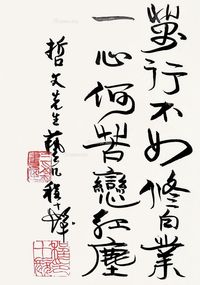 萬行不如修白業
一心何苦戀紅塵
哲文先生藝正程十髮